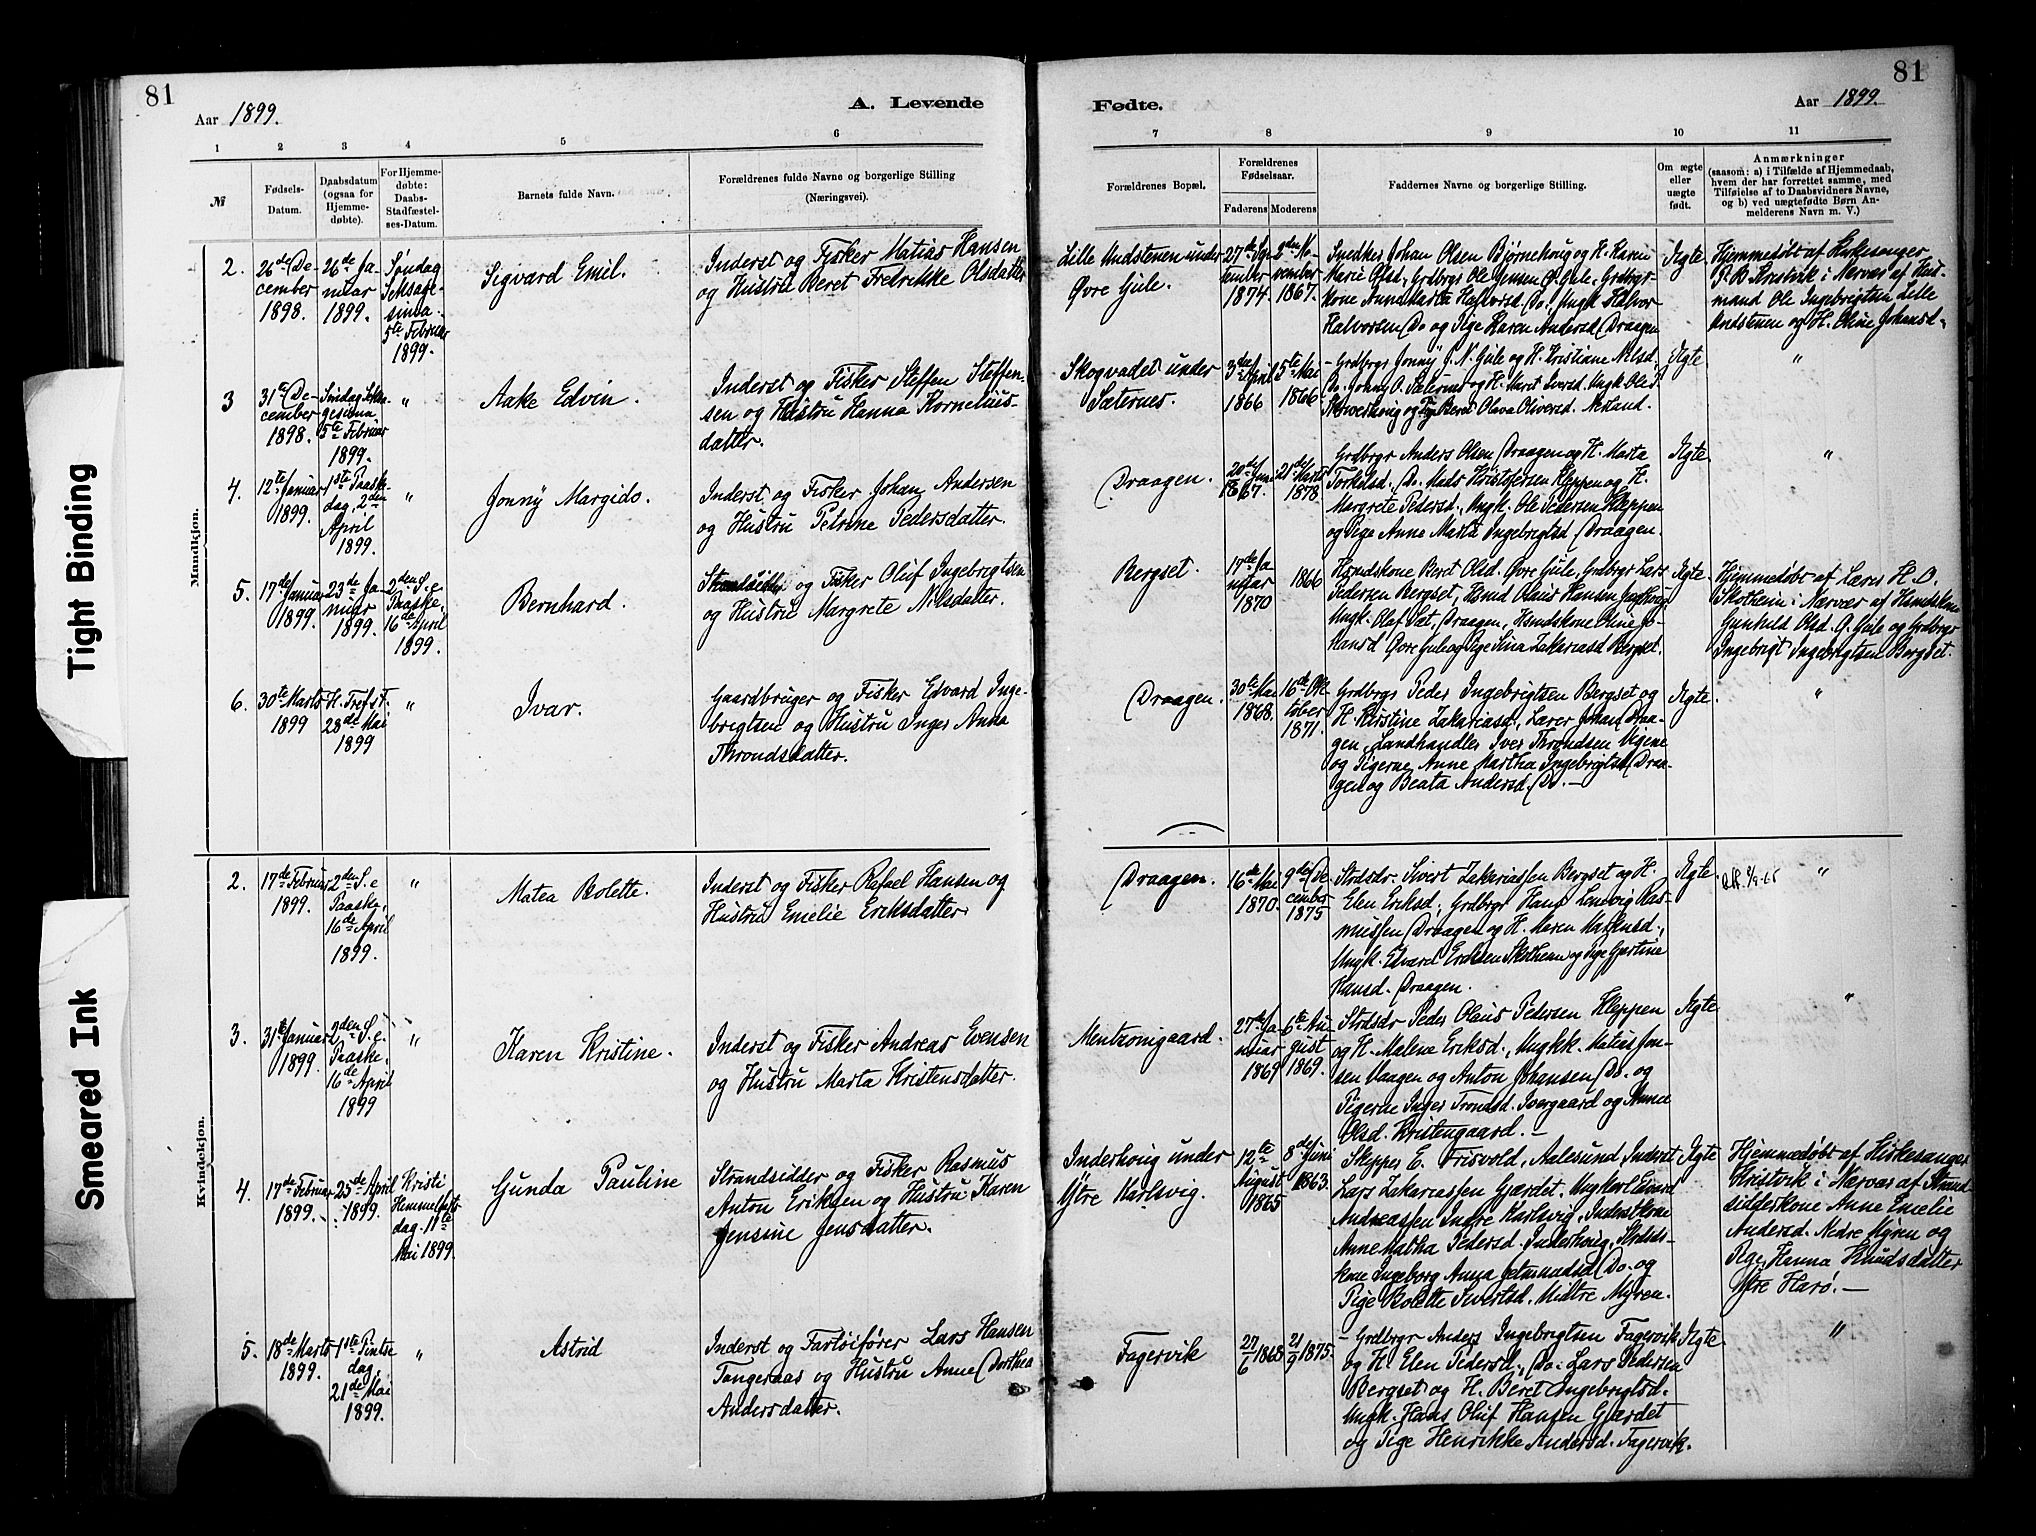 81
Aar 1899.
A. Levende
1 2 3 4 5 6
№
Fødsels-
Datum.
Daabsdatum
(ogsaa for
Hjemme-
døbte).
For Hjemme-
døbte:
Daabs-
Stadfæstel-
ses-Datum.
Barnets fulde Navn.
Forældrenes fulde Navne og borgerlige Stilling
(Næringsvei).
Mandkjøn.
2.
26de De-
cember
1898.
26de Ja-
nuar
1899.
Søndag
Seksage-
sima
5te Februar
1899.
Sigvard Emil.
Inderst og Fisker Matias Hansen
og Hustru Beret Fredrikke Olsdatter
3
31te De-
cember
1898.
Søndag Seksa-
gesima
5te Februar
1899.
"
Aake Edvin.
Inderst og Fisker Steffen Steffen-
sen og Hustru Hanna Kornelius-
datter.
4.
12te Januar
1899.
1ste Paaske-
dag, 2den
April
1899.
"
Jonny Margido.
Inderst og Fisker Johan Andersen
og Hustru Petrine Pedersdatter.
5.
17de Januar
1899.
23de Ja-
nuar
1899.
2den S. e.
Paaske,
16de April
1899.
Bernhard.
Strandsidder og Fisker Oluf Ingebrigtsen
og Hustru Margrete Nilsdatter.
6.
30te Marts
1899
H. Tref. F.
28de Mai
1899
"
Ivar.
Gaardbruger og Fisker Edvard Inge-
brigtsen og Hustru Inger Anna
Throndsdatter.
Kvindekjøn.
2.
17de Februar
1899.
2den S. e.
Paaske,
16de April
1899.
"
Matea Bolette.
Inderst og Fisker Rafael Hansen og
Hustru Emelie Eriksdatter
3.
31te Januar
1899.
2den S. e.
Paaske,
16de April
1899
"
Karen Kristine.
Inderst og Fisker Andreas Evensen
og Hustru Marta Kristensdatter.
4.
17de Februar
1899.
25de April
1899.
Kristi
Himmelfarts
dag. 11te
Mai 1899.
Gunda Pauline
Strandsidder og Fisker Rasmus
Anton Eriksen og Hustru Karen
Jensine Jensdatter.
5.
18de Marts
1899.
1ste Pintse
dag,
21de Mai
1899.
"
Astrid
Inderst og Fartøifører Lars Hansen
Tangeraas og Hustru Anne Dorthea
Andersdatter.
81
Fødte.
Aar 1899.
7 8 9 10 11
Forældrenes Bopæl.
Forældrenes
Fødselsaar.
Faderens Moderens
Faddernes Navne og borgerlige Stilling.
Om ægte
eller
uægte
født.
Anmærkninger
(saasom: a) i Tilfælde af Hjemmedaab,
hvem der har forrettet samme, med
Tilføielse af to Daabsvidners Navne,
og b) ved uægtefødte Børn An-
melderens Navn m. V.)
Lille Undstenen under
Øvre Gule.
1874.
2den No-
vember
1867.
Snedker Johan Olsen Bjørnehaug og H. Karen
Marie Olsd., Grdbrgr Ole Jensen Ø. Gule, Grdbrgr-
kone Anne Marta Halvorsd. Do., Ungk. Halvor
Halvorsen Do og Pige Karen Andersd. Draagen
Ægte
Hjemmedøbt af Kirkesanger
P. B. Kristvik i Nærvær af Hus-
mand Ole Ingebrigtsen Lille
Undstenen og H. Oline Johansd.
Skogvadet under
Sæternes.
3die April
1866
5te Mai
1866
Grdbrgr Jonny J. N. Gule og H. Kristiane Nilsd.
Do. Jonny O. Sæternes og H. Maret Iversd. Ungk. Ole S.
og Pige Beret Olava Oliversd. Nesland.
Ægte
"
Draagen.
20de Juni
1867.
21de Marts
1878.
Grdbrgr Anders Olsen Draagen og H. Marta
Torkilsd., Do. Mads Kristofersen Kleppen og H.
Margrete Pedersd., Ungk. Ole Pedersen Kleppen
og Pige Anne Marta Ingebrigtsd. Draagen.
Ægte
"
Bergset.
17de Ja-
nuar
1870
1866
Husmdskone Beret Olsd. Øvre Gule, Grdbrgr Lars
Pedersen Bergset, Husmd Olaus Hansen
Ungk. Olaf Sæt, Draagen, Husmdskone Oline Jo-
hansd Øvre Gule og Pige Sina Zakariasd Bergset.
Ægte
Hjemmedøbt af Lærer H. O.
Skotheim i Nærvær af Husmdskone
Gunhild Olsd. Ø. Gule og Grdbrgr
Ingebrigt Ingebrigtsen Bergset.
Draagen.
30te Mai
1868.
16de Ok-
tober
1871.
Grdbrgr Peder Ingebrigtsen Bergset og
H. Kirstine Zakariasd., Lærer Johan Draa-
gen, Landhandler Iver Throndsen Vegene
og Pigerne Anne Martha Ingebrigtsd. Draa-
gen og Beata Andersd. Do. —
Ægte
"
Draagen.
16de Mai
1870.
9de De-
cember
1875
Strdsdr. Sivert Zakariassen Bergset og H.
Elen Eriksd., Grdbrgr Hans Lemvig Ras-
mussen Draagen og H. Maren
Ungk. Edvard Eriksen Skotheim og Pige Gjertine
Hansd. Draagen.
Ægte
"
Mentzonigaard.
27de Ja-
nuar
1869
6te Au-
gust
1869.
Strdsdr Peder Olaus Pedersen Kleppen
og H. Malene Eriksd., Ungkk. Matias Jon-
sen Vaagen og Anton Johansen Do. og
Pigerne Inger Trondsd. Ivergaard og Anne
Olsd. Kristengaard. —
Ægte
"
Inderhaug under
Ytre Karlsvig.
12te
August
1865
8de Juni
1863.
Skipper E. Frisvold, Aalesund, Inderst
Lars Zakariassen Gjærdet, Ungkarl Edvard
Andreassen Indre Karlsvig, Inderstkone
Anne Pedersd. Inderhaug, Strdsdr-
kone Ingeborg Anna Do. og
Pige Bolette Sivertsd. Midtre Myren.
Ægte
Hjemmedøbt af Kirkesanger
Kristvik i Nærvær af Strand-
sidderkone Anne Emelie
Andersd. Nedre Myren og
Pige Hanna Knudsdatter
Ytre Harø. —
Fagervik
27/6 1868
21/9 1875.
Grdbrgr Anders Ingebrigtsen Fagervik
og H. Elen Pedersd., Do. Lars Pedersen
Bergset og H. Beret Ingebrigtsd.
Ungk. Hans Oluf Hansen Gjærdet
og Pige Henrikke Andersd. Fagervik.
Ægte
"
Tight Binding
Smeared Ink